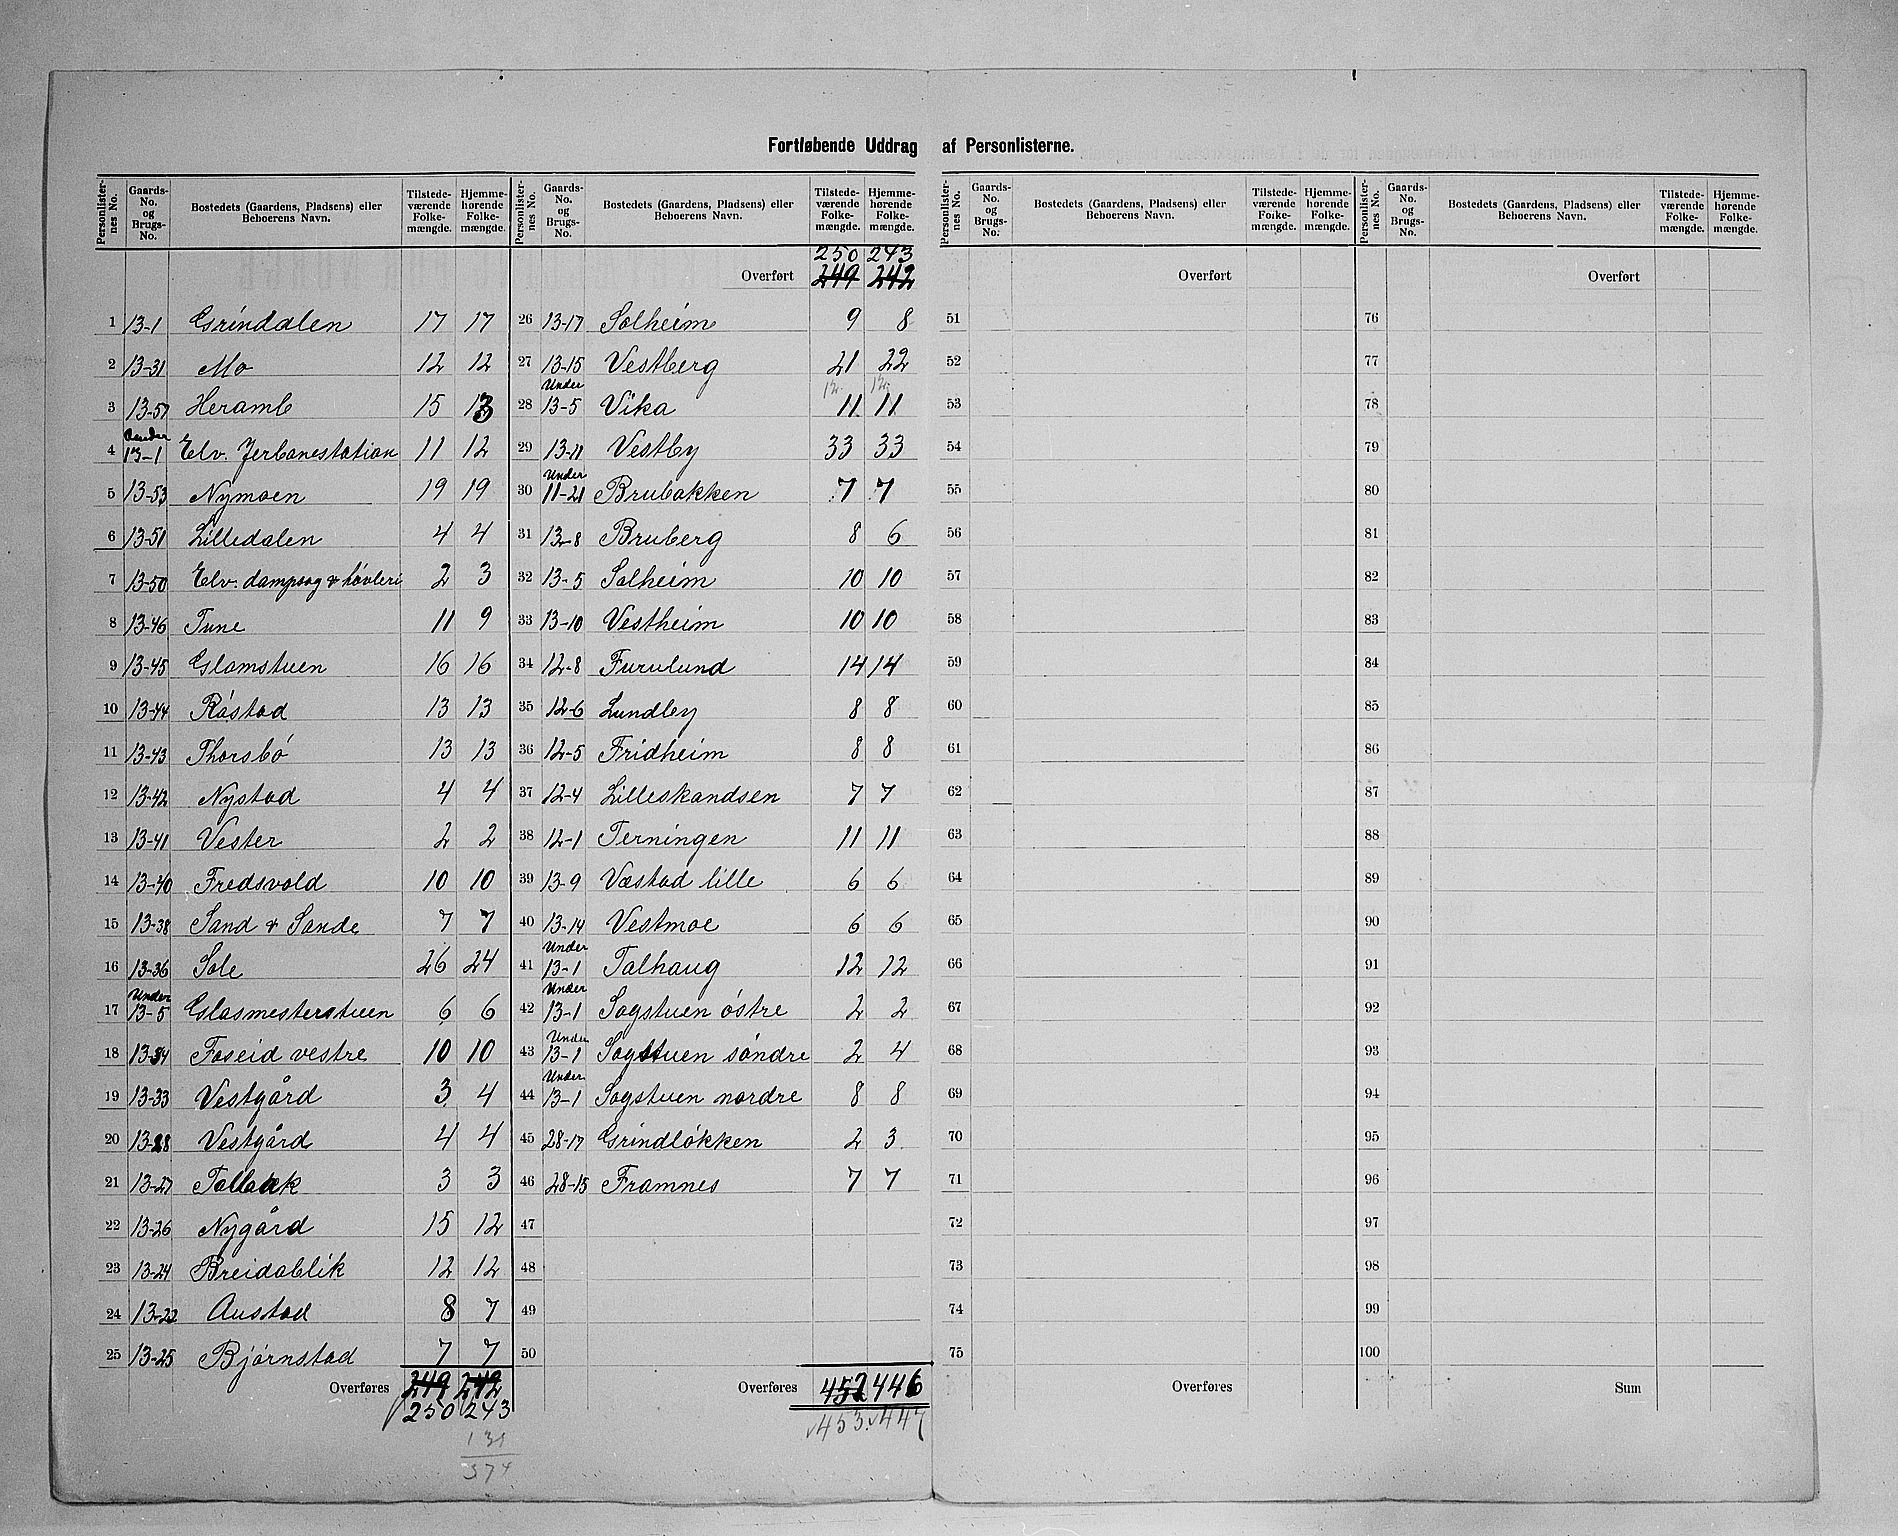 Fortløbende Uddrag af Personlisterne.
Personlister-nes No. | Gaards-No. og Brugs-No. | Bostedets (Gaardens, Pladsens) eller Beboerens Navn. | Tilstede-værende Folke-mængde. | Hjemme-hørende Folke-mængde.
1 13-1 Grindalen 17 17
2 13-31 Mo 12 12
3 13-57 Heramb 15 13
4 Under 13-1 Elv. Jerbanestation 11 12
5 13-53 Nymoen 19 19
6 13-51 Lilledalen 4 4
7 13-50 Elv. dampsag & høvleri 2 3
8 13-46 Tune 11 9
9 13-45 Glamstuen 16 16
10 13-44 Råstad 13 13
11 13-43 Thorsbó 13 13
12 13-42 Nystad 4 4
13 13-41 Vester 2 2
14 13-40 Fredsvold 10 10
15 13-38 Sand & Sande 7 7
16 13-36 Sole 26 24
17 Under 13-5 Glasmesterstuen 6 6
18 13-34 Foseid vestre 10 10
19 13-33 Vestgård 3 4
20 13-28 Vestgård 4 4
21 13-27 Solbak 3 3
22 13-26 Nygård 15 12
23 13-24 Breidablik 12 12
24 13-22 Austad 8 7
25 13-25 Bjórnstad 7 7
Overføres 249 242
250 243
131
374
Personlister-nes No. | Gaards-No. og Brugs-No. | Bostedets (Gaardens, Pladsens) eller Beboerens Navn. | Tilstede-værende Folke-mængde. | Hjemme-hørende Folke-mængde.
250 243
Overført 249 242
26 13-17 Solheim 9 8
27 13-15 Vestberg 21 22
12 12
28 Under 13-5 Vika 11 11
29 13-11 Vestby 33 33
30 Under 11-21 Brubakken 7 7
31 13-8 Bruberg 8 6
32 13-5 Solheim 10 10
33 13-10 Vestheim 10 10
34 12-8 Furulund 14 14
35 12-6 Lundby 8 8
36 12-5 Fridheim 8 8
37 12-4 Lilleskandsen 7 7
38 12-1 Terningen 11 11
39 13-9 Væstad lille 6 6
40 13-14 Vestmoe 6 6
41 Under 13-1 Solhaug 12 12
42 Under 13-1 Sagstuen óstre 2 2
43 Under 13-1 Sagstuen sóndre 2 4
44 Under 13-1 Sagstuen nordre 8 8
45 28-17 Grindlókken 2 3
46 28-15 Framnes 7 7
47
48
49
50
Overføres 452 446
453 447
Personlister-nes No. | Gaards-No. og Brugs-No. | Bostedets (Gaardens, Pladsens) eller Beboerens Navn. | Tilstede-værende Folke-mængde. | Hjemme-hørende Folke-mængde.
Overført
51
52
53
54
55
56
57
58
59
60
61
62
63
64
65
66
67
68
69
70
71
72
73
74
75
Overføres
Personlister-nes No. | Gaards-No. og Brugs-No. | Bostedets (Gaardens, Pladsens) eller Beboerens Navn. | Tilstede-værende Folke-mængde. | Hjemme-hørende Folke-mængde.
Overført
76
77
78
79
80
81
82
83
84
85
86
87
88
89
90
91
92
93
94
95
96
97
98
99
100
Sum